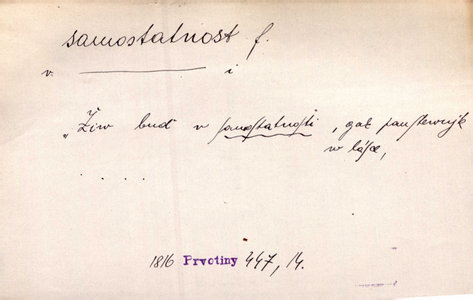 samostatnost f.
v. ———— i
„Žiw buď v samostatnosti, gak paustewnjk
w láſce,
. . . .
1816 Prvotiny 447, 14.